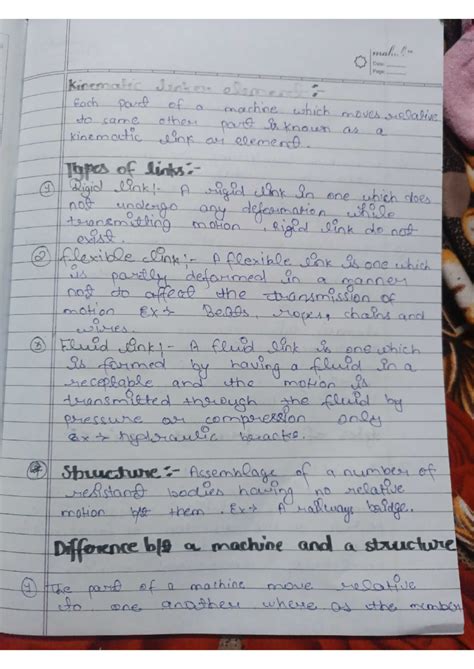 Date:
Page:
Kinematic link or element :-
Each part of a machine which moves relative
to some other part is known as a
kinematic link or element.
Types of links :-
① Rigid link :- A rigid link is one which does
not undergo any deformation while
transmitting motion. Rigid link do not
exist.
② flexible link :- A flexible link is one which
is partly deformed in a manner
not to affect the transmission of
motion Ex → Belts, ropes, chains and
wires.
③ Fluid link :- A fluid link is one which
is formed by having a fluid in a
receptable and the motion is
transmitted through the fluid by
pressure or compression only
Ex → hydraulic
④ Structure :- Assemblage of a number of
resistant bodies having no relative
motion b/w them. Ex → A railways bridge.
Difference b/w a machine and a structure
① The part of a machine move relative
to one another where as the member